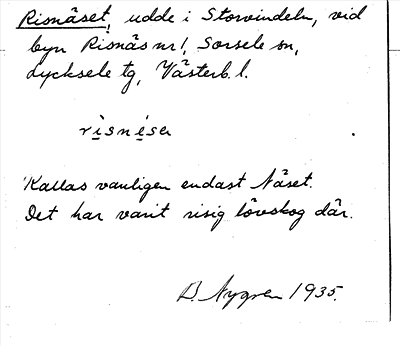 Risnäset, udde i Storvindeln, vid
byn Risnäs nr 1, Sorsele sn,
Lycksele tg, Västerb. l.
risnẹsɐ
Kallas vanligen endast Näset.
Det har varit risig lövskog där.
B. Nygren 1935.